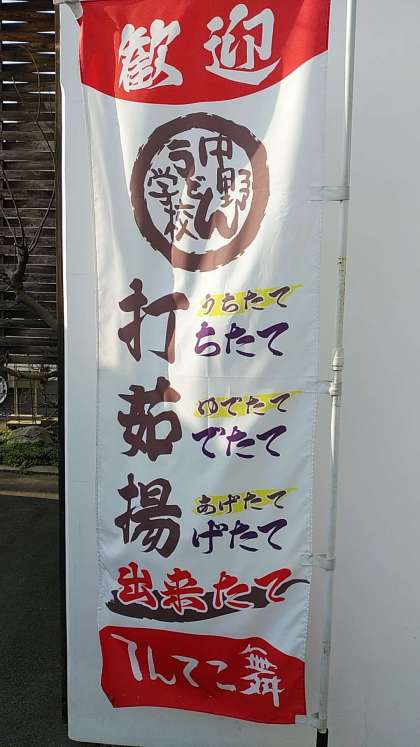 歓迎
中野
うどん
学校
うちたて
打ちたて
ゆでたて
茹でたて
あげたて
揚げたて
出来たて
てんてこ舞